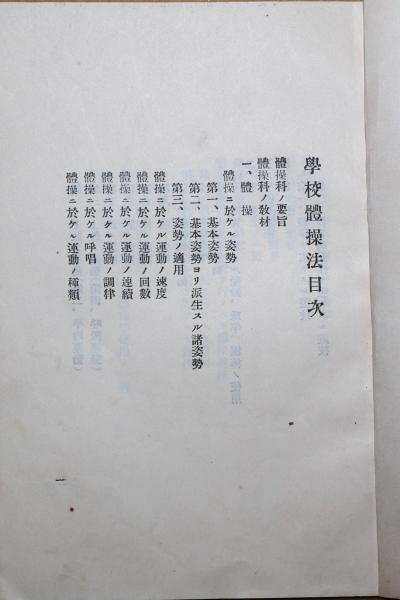 學校體操法目次
體操科ノ要旨
體操科ノ敎材
一、體操
體操ニ於ケル姿勢
第一、基本姿勢
第二、基本姿勢ヨリ派生スル諸姿勢
第三、姿勢ノ適用
體操ニ於ケル運動ノ速度
體操ニ於ケル運動ノ回數
體操ニ於ケル運動ノ連續
體操ニ於ケル運動ノ調律
體操ニ於ケル呼唱
體操ニ於ケル運動ノ種類
一